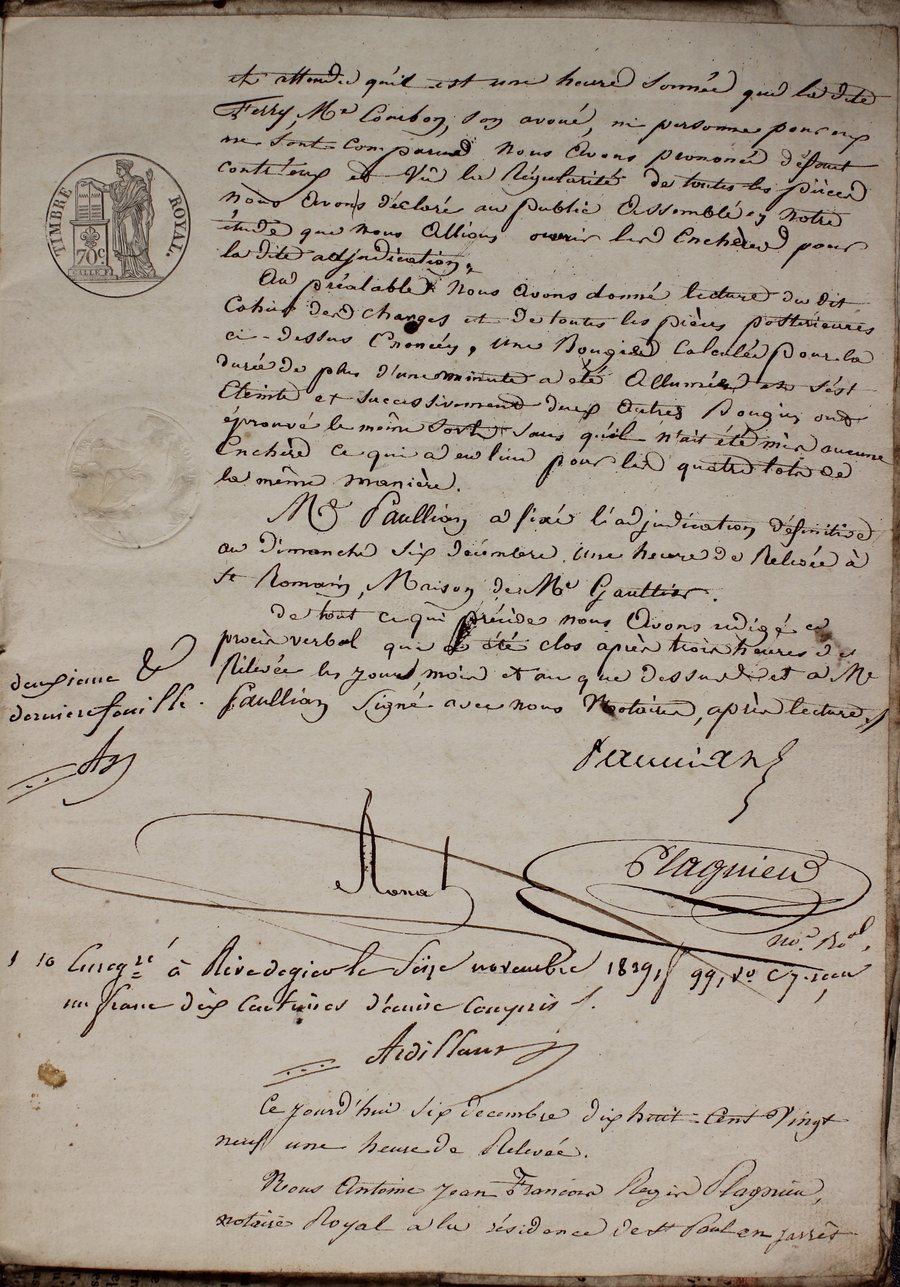 et attendu qu'il est une heure sonnée que la dite
Ferry, Me Combon, son avoué, ni personne pour eux
ne sont comparus nous avons prononcé défaut
contr'eux et vû la régularité de toutes les pièces
nous avons déclaré au public assemblé en notre
étude que nous allions ouvrir les enchères pour
la dite adjudication.
TIMBRE ROYAL.
70c.
Au préalable nous avons donné lecture du dit
Cahier des charges et de toutes les pièces postérieures
ci-dessus énoncées, une Bougie calculée pour la
durée de plus d'une minute a été allumée et s'est
éteinte et successivement deux autres Bougies ont
éprouvé le même sort sans qu'il n'ait été mis aucune
enchère ce qui a eu lieu pour les quatre lots de
la même manière.
Me Paullian a fixé l'adjudication définitive
au Dimanche six décembre une heure de Relevée à
St Romain, Maison de Me Gaultier.
De tout ce qui précède nous avons rédigé ce
procès verbal qui a été clos après trois heures de
Relevée les jour, mois et an que dessus et a Me
Paullian signé avec nous Notaire, après lecture
deuxieme &
derniere feuille.
Plagnieu
no.re Roal,
Enregré à Rivedegier le seize novembre 1829, f 99, vo c 7. reçu
un franc dix centimes décime compris
Ardillaux
Ce jourd'hui six decembre dix huit cent vingt
neuf une heure de Relevée.
Nous Antoine Jean François Regis Plagnieu,
notaire Royal a la résidence de St Paul en jarrêt